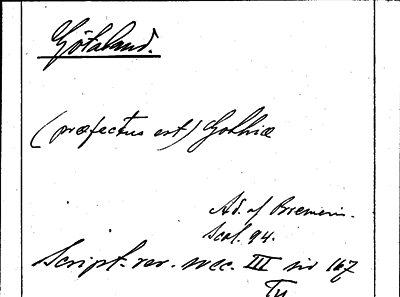 Götaland.
(præfectus est) Gothiæ
Ad. af Bremen.
Scol. 94.
Script. rer. svec. III
Tu